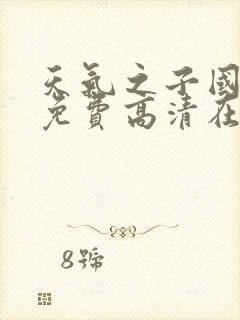 天氣之子國
免費高清在
8號